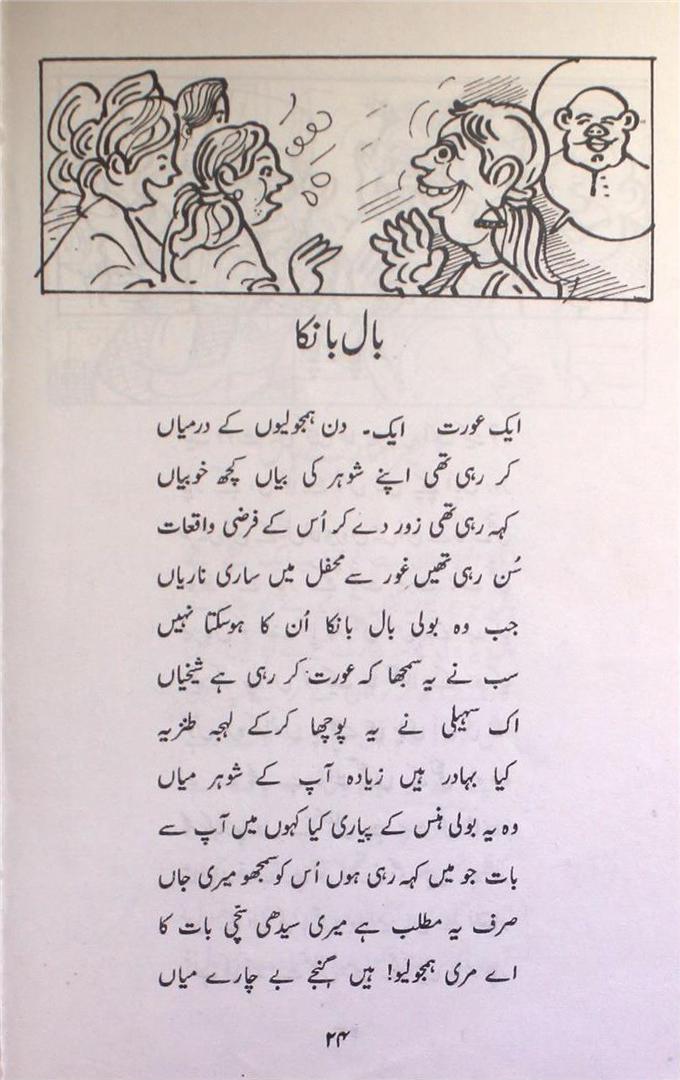 بال بانکا
ایک عورت ایک۔ دن ہمجولیوں کے درمیاں
کر رہی تھی اپنے شوہر کی بیاں کچھ خوبیاں
کہہ رہی تھی زور دے کر اُس کے فرضی واقعات
سُن رہی تھیں غور سے محفل میں ساری ناریاں
جب وہ بولی بال بانکا اُن کا ہوسکتا نہیں
سب نے یہ سمجھا کہ عورت کر رہی ہے شیخیاں
اک سہیلی نے یہ پوچھا کرکے لہجہ طنزیہ
کیا بہادر ہیں زیادہ آپ کے شوہر میاں
وہ یہ بولی ہنس کے پیاری کیا کہوں میں آپ سے
بات جو میں کہہ رہی ہوں اُس کو سمجھو میری جاں
صرف یہ مطلب ہے میری سیدھی سچّی بات کا
اے مری ہمجولیو! ہیں گنجے بے چارے میاں
۲۴